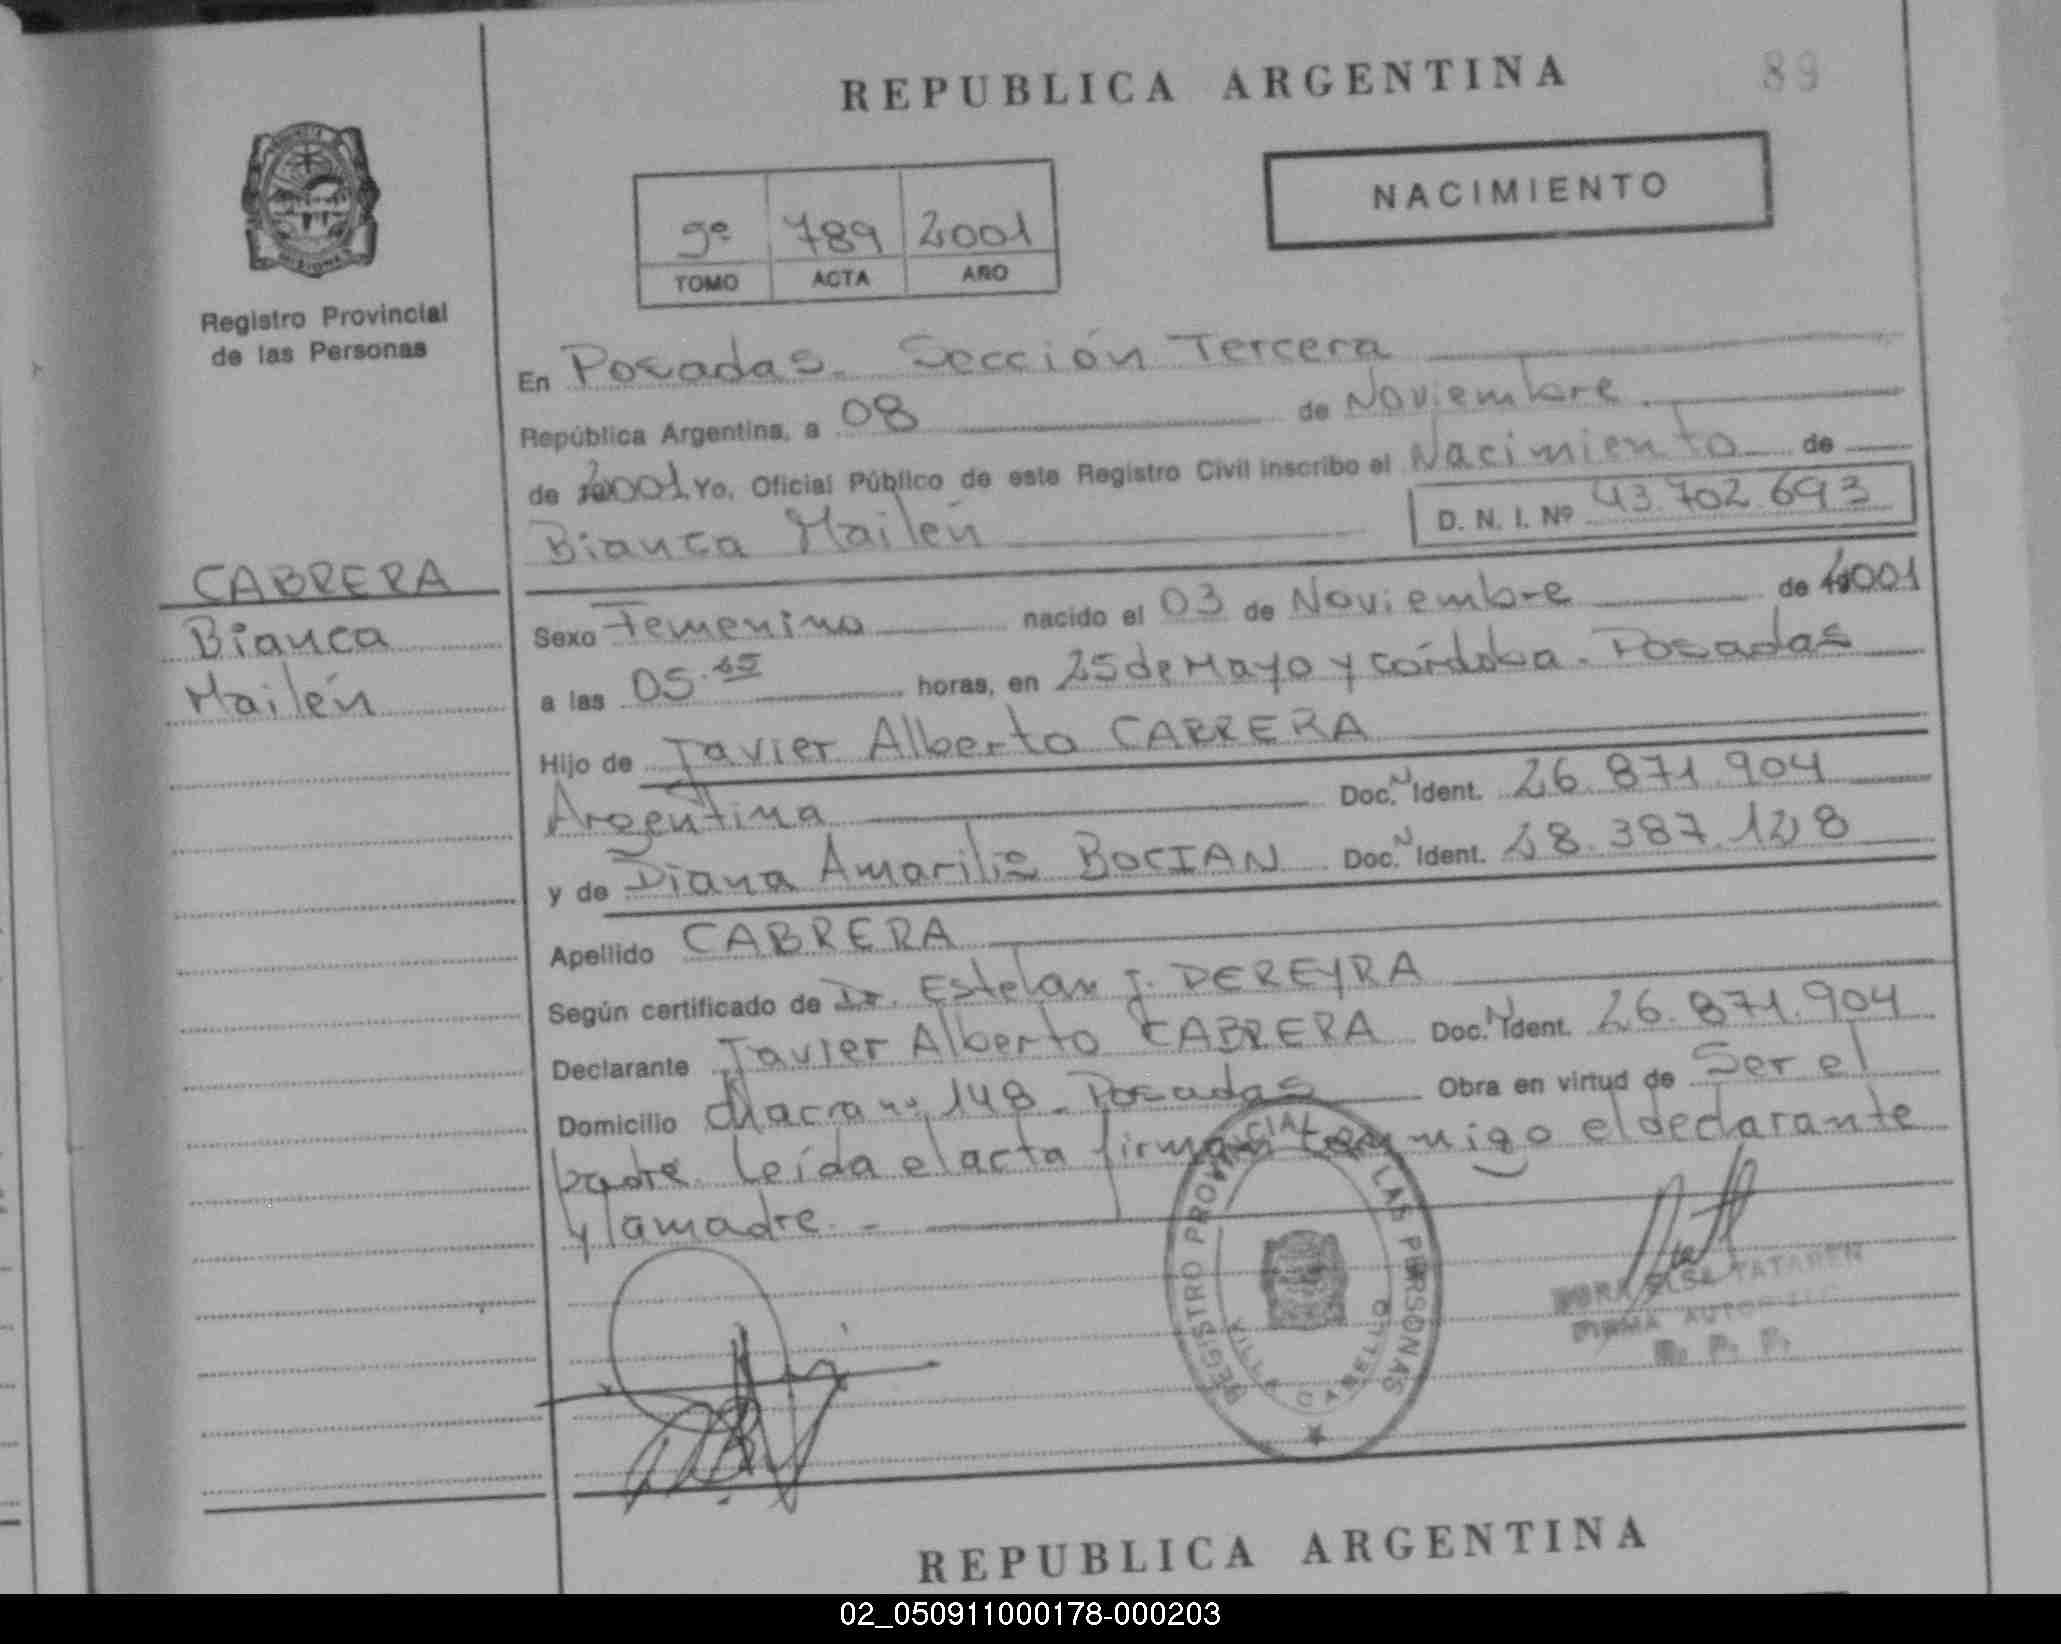 REPUBLICA ARGENTINA
89
NACIMIENTO
9º 789 2001
TOMO ACTA AÑO
Registro Provincial
de las Personas
En Posadas. Sección Tercera
República Argentina, a 08 de Noviembre
de 2001 Yo, Oficial Público de este Registro Civil inscribo el Nacimiento de
Bianca Mailén D. N. I. Nº 43.702.693
CABRERA
Bianca
Mailén
Sexo Femenino nacido el 03 de Noviembre de 2001
a las 05. horas, en 25 de Mayo y Córdoba. Posadas
Hijo de Javier Alberto CABRERA
Argentina Doc. N Ident. 26.871.904
y de Diana Amarilis BOCIAN Doc. N Ident. 28.387.128
Apellido CABRERA
Según certificado de Dr. Estelan J. PEREYRA
Declarante Javier Alberto CABRERA Doc. N Ident. 26.871.904
Domicilio Chacra nº 148. Posadas Obra en virtud de Ser el
padre. Leída el acta firman conmigo el declarante
y la madre. -
REGISTRO PROVINCIAL DE LAS PERSONAS
VILLA CABELLO
ELSA TATAREN
FIRMA
R. P. P.
REPUBLICA ARGENTINA
02_050911000178-000203